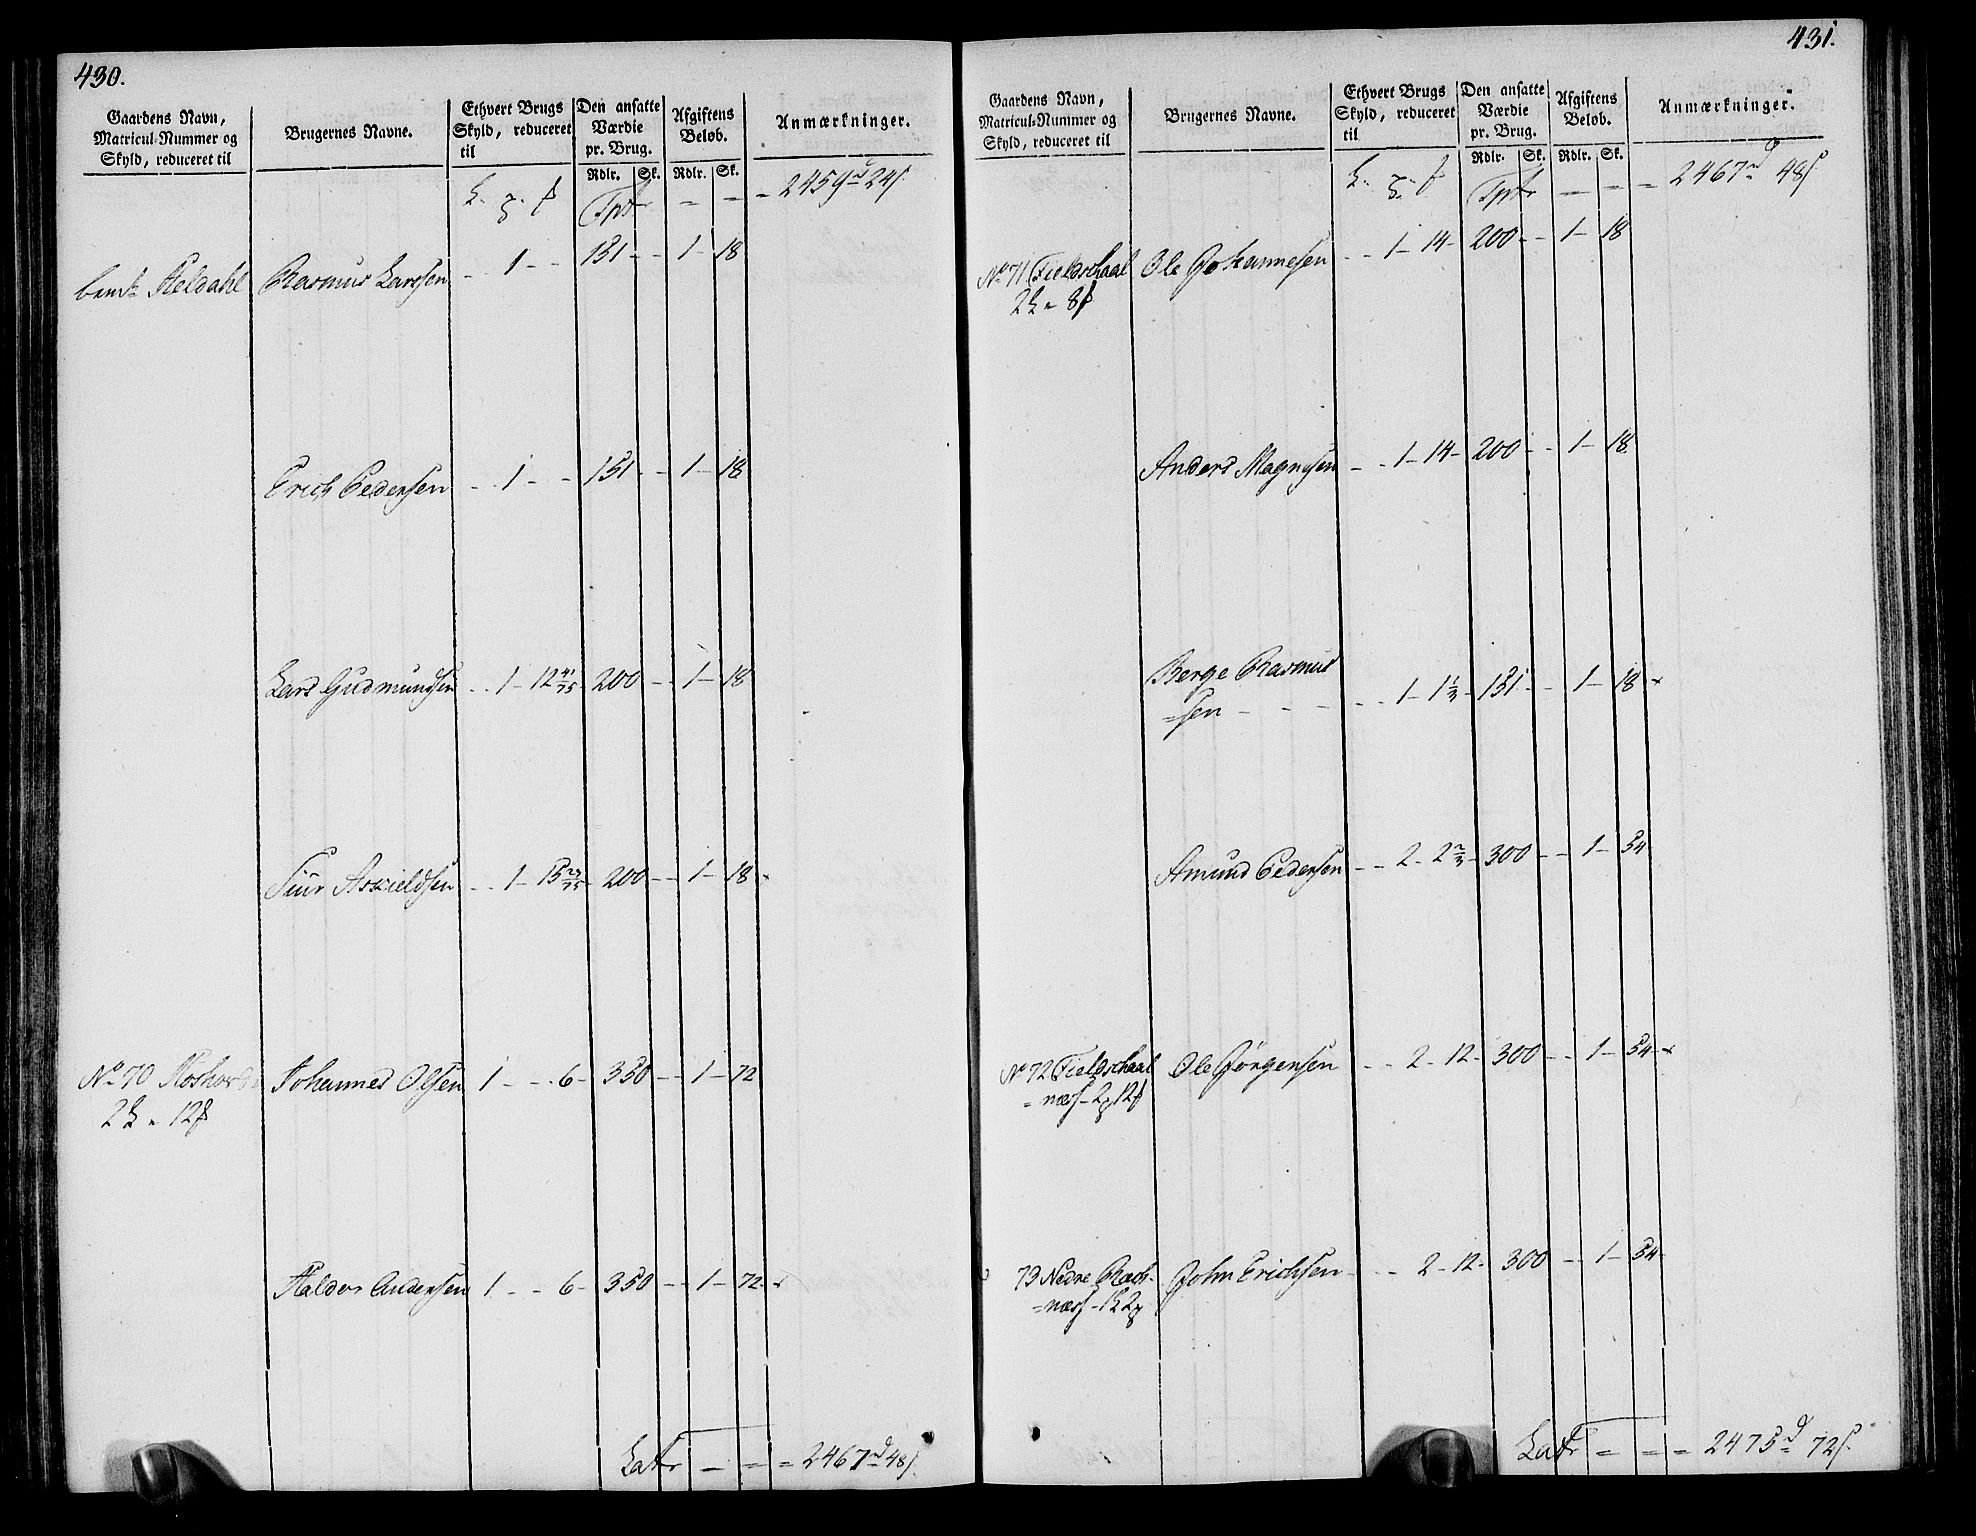 430.
Gaardens Navn,
Matricul-Nummer og
Skyld, reduceret til
Brugernes Navne.
Ethvert Brugs
Skyld, reduceret
til
Den ansatte
Værdie
pr. Brug.
Afgiftens
Beløb.
Anmærkninger.
Rdlr. Sk. Rdlr. Sk.
Tpt - - - 2459 24
Heldahl Rasmus Larssen - - 1 - - 151 - - 1 - 18
Erich Pedersen - - 1 - - 151 - - 1 - 18
Lars Gudmundsen - - 1 - 12 41/75 200 - - 1 - 18
Siur Askieldsen - - 1 - 15 29/75 200 - - 1 - 18
No 70 Johannes Olsen 1 - - 6 - 350 - - 1 - 72
Haldor Andersen 1 - - 6 - 350 - - 1 - 72
Lat - - - 2467 48
431.
Gaardens Navn,
Matricul-Nummer og
Skyld, reduceret til
Brugernes Navne.
Ethvert Brugs
Skyld, reduceret
til
Den ansatte
Værdie
pr. Brug.
Afgiftens
Beløb.
Anmærkninger.
Rdlr. Sk. Rdlr. Sk.
Tpt - - - 2467 48
No 71 Fieldschaal Ole Johannesen - - 1 - 14 - 200 - - 1 - 18
Anders Magnesen - - 1 - 14 - 200 - - 1 - 18
Berge Rasmus
=sen - - - - - 1 - 1 1/3 - 151 - - 1 - 18
Amund Pedersen - - 2 - 2 2/3 - 300 - - 1 - 54
No 72 Fieldschaal Ole Jørgensen - - 2 - 12 - 300 - - 1 - 54
=næss
73 Nedre John Erichsen - - 2 - 12 - 300 - - 1 - 54
=næss
Lat - - - 2475 72